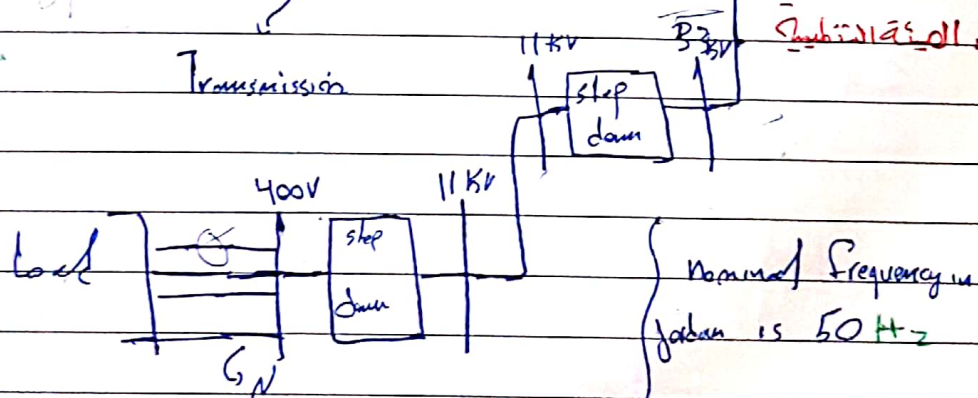 Transmission
11 KV
33 KV
step
down
400V
11 KV
step
down
Load
N
Nominal frequency in
Jordan is 50 Hz